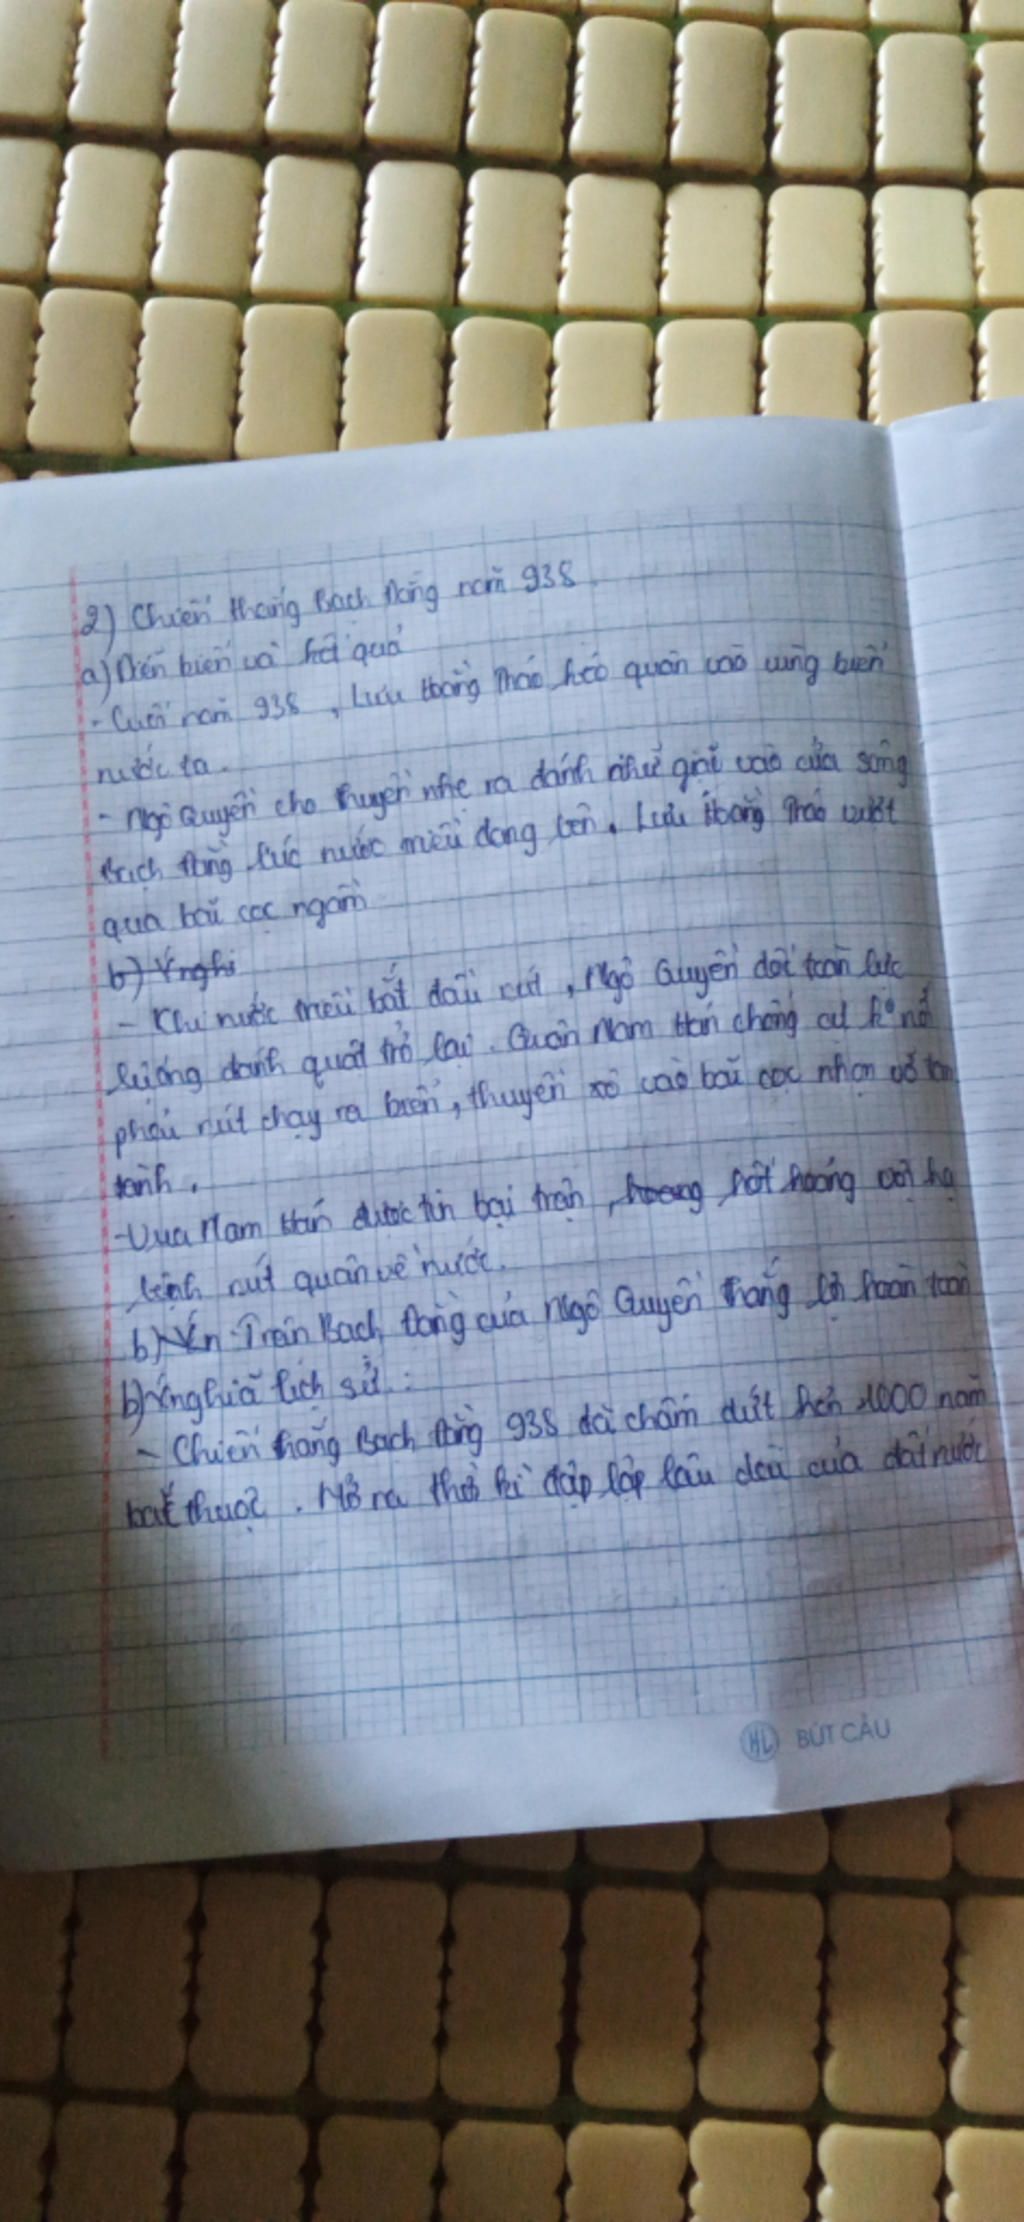 2) Chiến thắng Bạch Đằng năm 938
a) Diễn biến và kết quả
- Cuối năm 938, Lưu Hoằng Tháo kéo quân vào vùng biển
nước ta.
- Ngô Quyền cho thuyền nhẹ ra đánh nhử giặc vào cửa sông
Bạch Đằng lúc nước triều dâng lên. Lưu Hoằng Tháo vượt
qua bãi cọc ngầm
b) Ý nghi
- Khi nước triều bắt đầu rút, Ngô Quyền dốc toàn lực
lượng đánh quật trở lại. Quân Nam Hán chống cự kº nổi
phải rút chạy ra biển, thuyền xô vào bãi cọc nhọn vỡ tan
tành.
- Vua Nam Hán được tin bại trận, hoang hốt hoảng vội hạ
lệnh rút quân về nước.
b) Ýn - Trận Bạch Đằng của Ngô Quyền thắng lợi hoàn toàn
b) Ý nghĩa lịch sử:
- Chiến thắng Bạch Đằng 938 đã chấm dứt hơn 1000 năm
bắt thuộc. Mở ra thời kì độc lập lâu dài của đất nước
HL BÚT CẦU